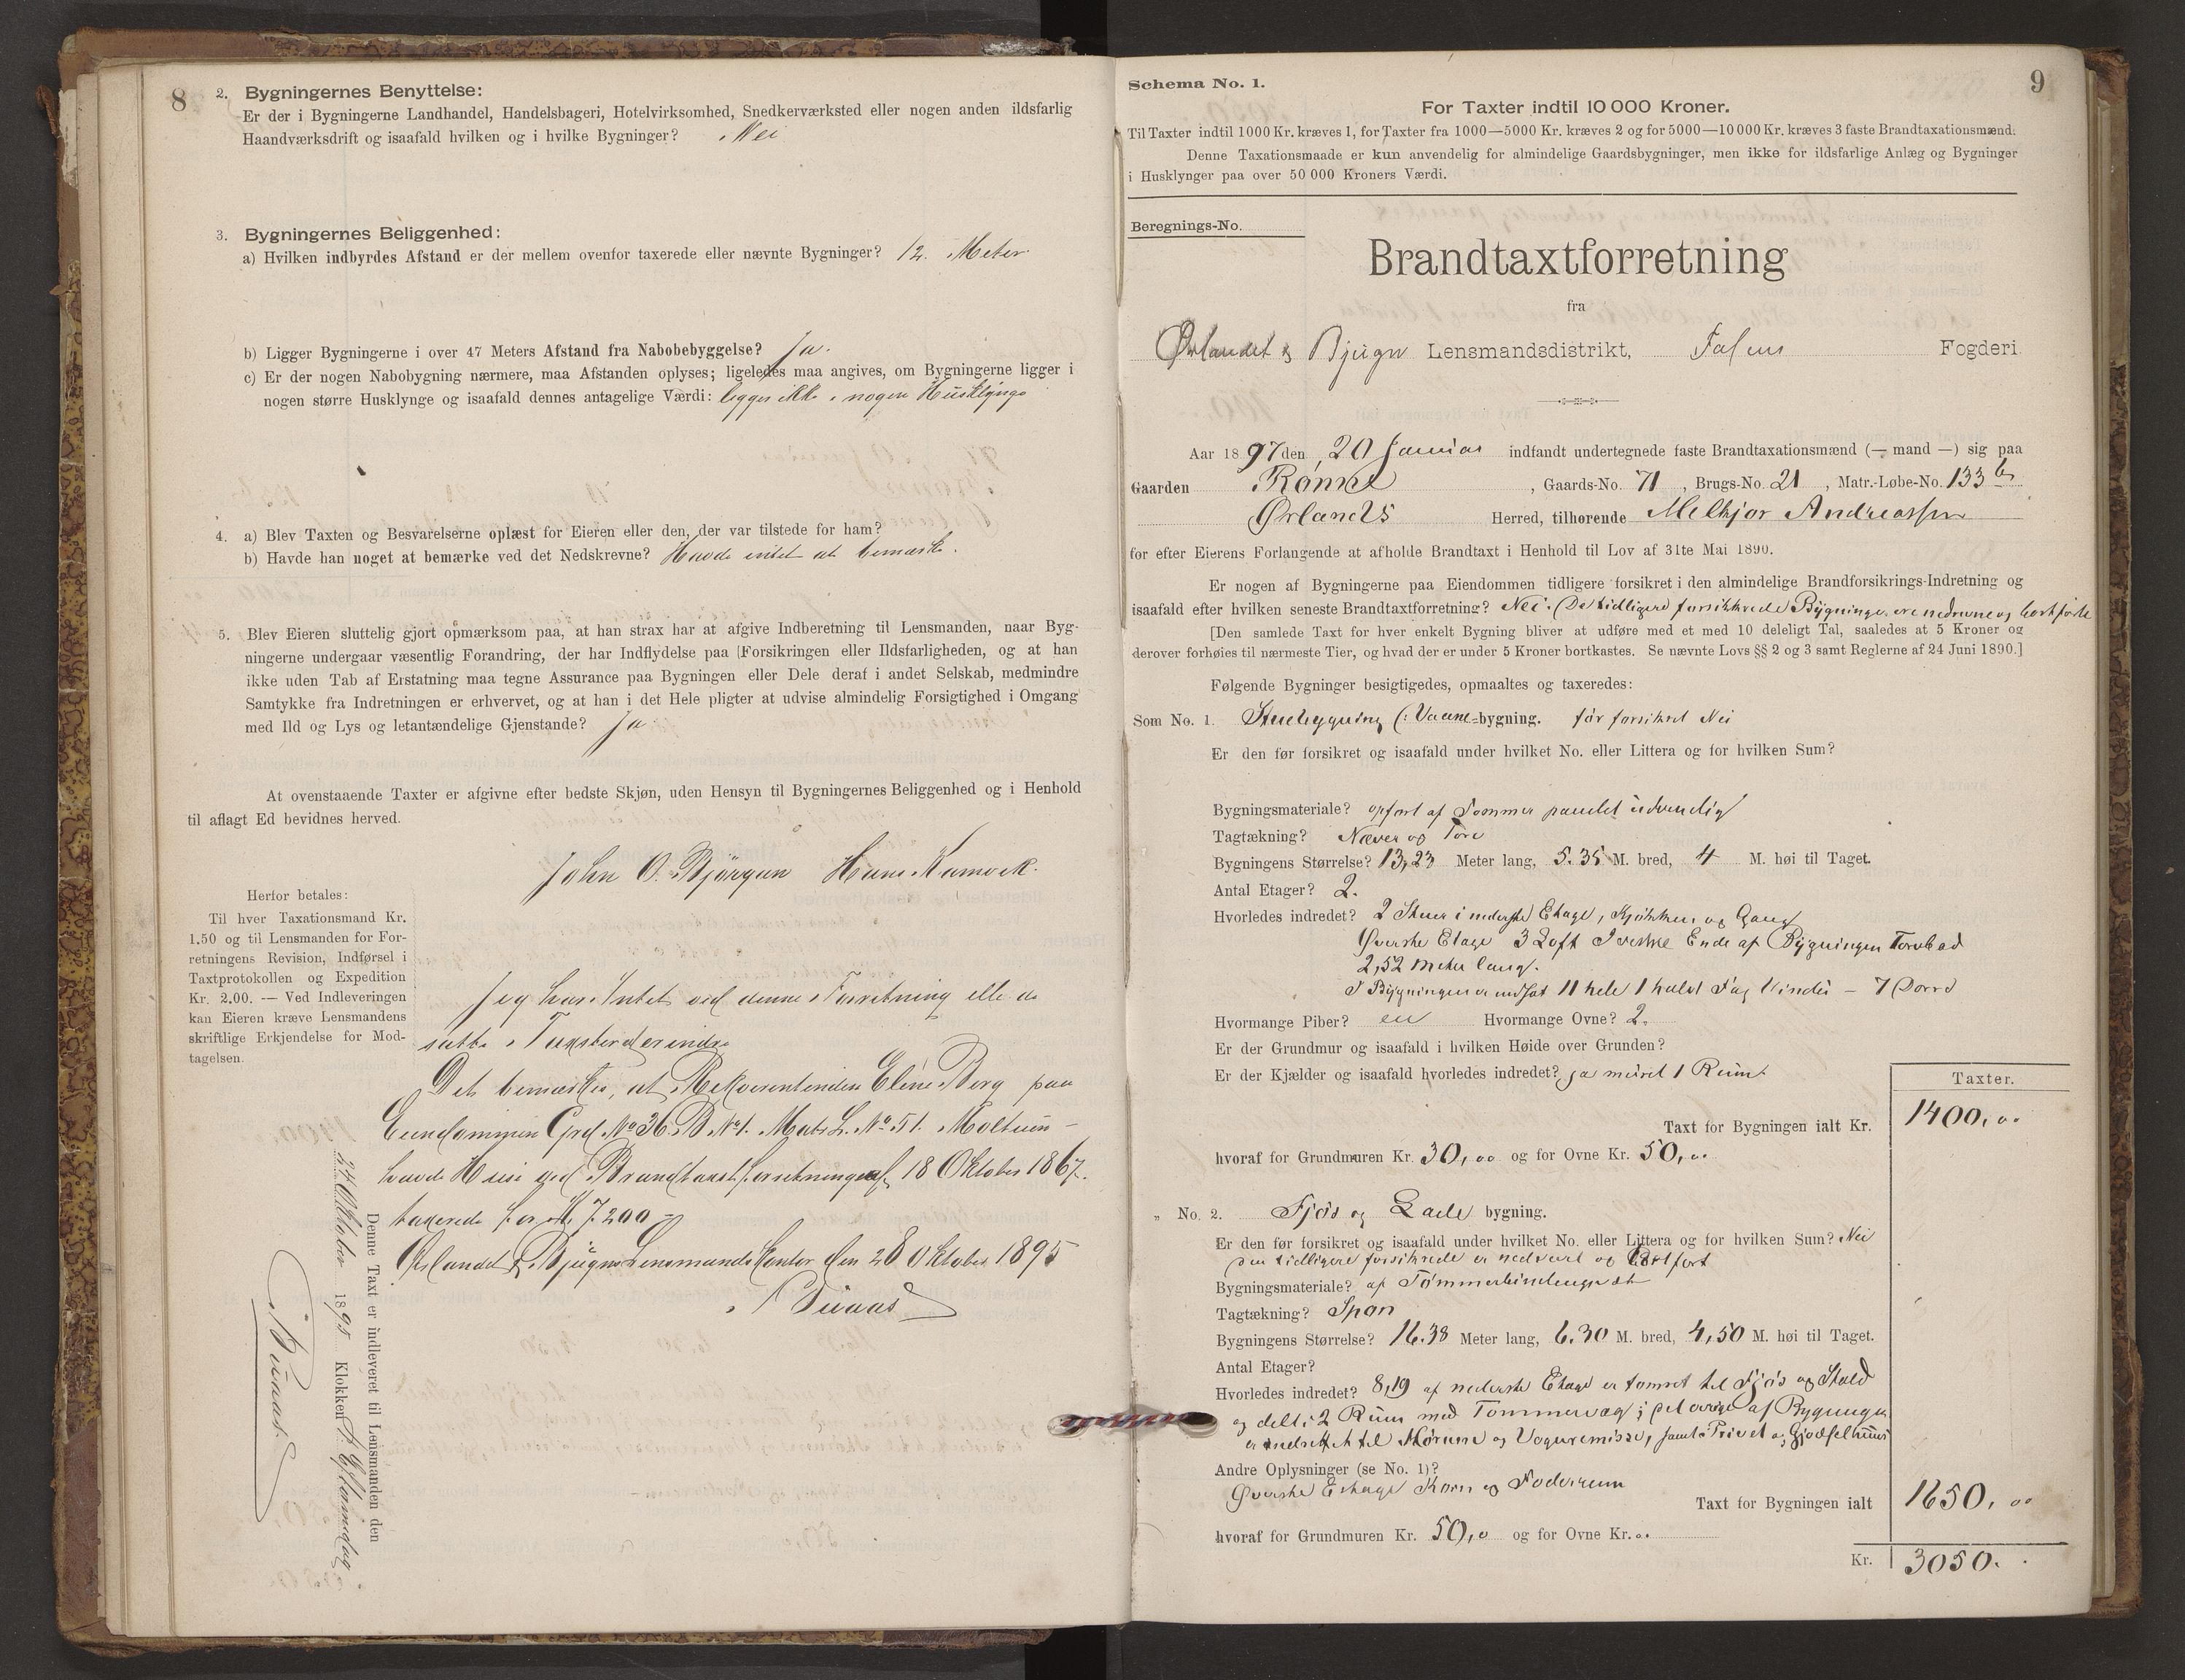 8
2. Bygningernes Benyttelse:
Er der i Bygningerne Landhandel, Handelsbageri, Hotelvirksomhed, Snedkerværksted eller nogen anden ildsfarlig
Haandværksdrift og isaafald hvilken og i hvilke Bygninger? Nei
3. Bygningernes Beliggenhed:
a) Hvilken indbyrdes Afstand er der mellem ovenfor taxerede eller nævnte Bygninger? 12. Meter
b) Ligger Bygningerne i over 47 Meters Afstand fra Nabobebyggelse? Ja.
c) Er der nogen Nabobygning nærmere, maa Afstanden oplyses; ligeledes maa angives, om Bygningerne ligger i
nogen større Husklynge og isaafald dennes antagelige Værdi: ligger ikke i nogen Husklynge
4. a) Blev Taxten og Besvarelserne oplæst for Eieren eller den, der var tilstede for ham?
b) Havde han noget at bemærke ved det Nedskrevne? Havde intet at bemærke.
5. Blev Eieren sluttelig gjort opmærksom paa, at han strax har at afgive Indberetning til Lensmanden, naar Byg-
ningerne undergaar væsentlig Forandring, der har Indflydelse paa Forsikringen eller Ildsfarligheden, og at han
ikke uden Tab af Erstatning maa tegne Assurance paa Bygningen eller Dele deraf i andet Selskab, medmindre
Samtykke fra Indretningen er erhvervet, og at han i det Hele pligter at udvise almindelig Forsigtighed i Omgang
med Ild og Lys og letantændelige Gjenstande? Ja
At ovenstaaende Taxter er afgivne efter bedste Skjøn, uden Hensyn til Bygningernes Beliggenhed og i Henhold
til aflagt Ed bevidnes herved.
John O. Bjørgan Hans
Herfor betales:
Til hver Taxationsmand Kr.
1.50 og til Lensmanden for For-
retningens Revision, Indførsel i
Taxtprotokollen og Expedition
Kr. 2.00. — Ved Indleveringen
kan Eieren kræve Lensmandens
skriftlige Erkjendelse for Mod-
tagelsen.
Jeg har Intet ved denne Forretning elle de
satte Taxster at erindre
Det bemærkes, at Rekvirentinden Eline Berg paa
Eiendommen Grd. No 36. B No 1. Matr. L. No 51.
havde Huse ved Brandtaxtforretning af 18 Oktober 1867.
taxerede for 7200
Ørlandet & Bjugns Lensmandskontor den 28 Oktober 1895
Denne Taxt er indleveret til Lensmanden den
24 Oktober 1895 Klokken Eftermidag
9
Schema No. 1.
For Taxter indtil 10 000 Kroner.
Til Taxter indtil 1000 Kr. kræves 1, for Taxter fra 1000—5000 Kr. kræves 2 og for 5000—10 000 Kr. kræves 3 faste Brandtaxationsmænd.
Denne Taxationsmaade er kun anvendelig for almindelige Gaardsbygninger, men ikke for ildsfarlige Anlæg og Bygninger
i Husklynger paa over 50 000 Kroners Værdi.
Beregnings-No.
Brandtaxtforretning
fra
Ørlandet & Bjugn Lensmandsdistrikt, Fosens Fogderi
Aar 1897 den 20 Januar indfandt undertegnede faste Brandtaxationsmænd (— mand —) sig paa
Gaarden Rønne, Gaards-No. 71, Brugs-No. 21, Matr.-Løbe-No. 133 b
Ørlands Herred, tilhørende Melkjor Andreassen
for efter Eierens Forlangende at afholde Brandtaxt i Henhold til Lov af 31te Mai 1890.
Er nogen af Bygningerne paa Eiendommen tidligere forsikret i den almindelige Brandforsikrings-Indretning og
isaafald efter hvilken seneste Brandtaxtforretning? Nei. De tidligere forsikkrede Bygninger ere nedrevne og bortførte
[Den samlede Taxt for hver enkelt Bygning bliver at udføre med et med 10 deleligt Tal, saaledes at 5 Kroner og
derover forhøies til nærmeste Tier, og hvad der er under 5 Kroner bortkastes. Se nævnte Lovs §§ 2 og 3 samt Reglerne af 24 Juni 1890.]
Følgende Bygninger besigtigedes, opmaaltes og taxeredes:
Som No. 1. Stuebygning (: Vaane-bygning. før forsikret Nei
Er den før forsikret og isaafald under hvilket No. eller Littera og for hvilken Sum?
Bygningsmateriale? opført af Tømmer panelet udvendig
Tagtækning? Næver og Torv
Bygningens Størrelse? 13,23 Meter lang, 5.35 M. bred, 4 M. høi til Taget.
Antal Etager? 2.
Hvorledes indredet? 2 Stuer i nederste Etage, Kjøkken og Gang
Øverste Etage 3 Loft I vestre Ende af Bygningen Torvbod
2,52 meter lang.
I Bygningen er indsat 11 hele 1 halvt Fag Vinder – 7 Dørre
Hvormange Piber? en Hvormange Ovne? 2.
Er der Grundmur og isaafald i hvilken Høide over Grunden?
Er der Kjælder og isaafald hvorledes indredet? ja muret 1 Rum.
Taxter.
Taxt for Bygningen ialt Kr. 1400,00
hvoraf for Grundmuren Kr. 30,00 og for Ovne Kr. 50,00
„ No. 2. Fjøs og Lade bygning.
Er den før forsikret og isaafald under hvilket No. eller Littera og for hvilken Sum? Nei
den tidligere forsikrede er nedrevet og bortført
Bygningsmateriale? af Tømmerbindingsverk
Tagtækning? Spon
Bygningens Størrelse? 16.38 Meter lang, 6.30 M. bred, 4,50 M. høi til Taget.
Antal Etager?
Hvorledes indredet? 8,19 af nederste Etage er tømret til Fjøs og Stald
og delt i 2 Rum med Tømmervæg; det øvrige af Bygningen
er indrettet til og Vognremisse, samt Privet og Gjødselhuus
Andre Oplysninger (se No. 1)?
Øverste Etage Korn og Foderrum
Taxt for Bygningen ialt 1650,00
hvoraf for Grundmuren Kr. 50,0 og for Ovne Kr. ..
Kr. 3050.